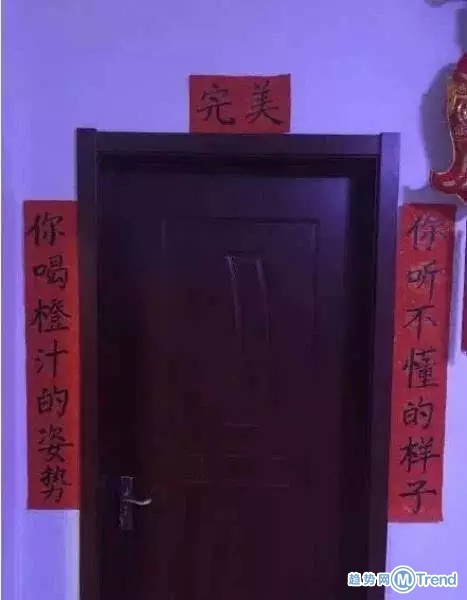 完美
你听不懂的样子
你喝橙汁的姿势
趋势网 M Trend